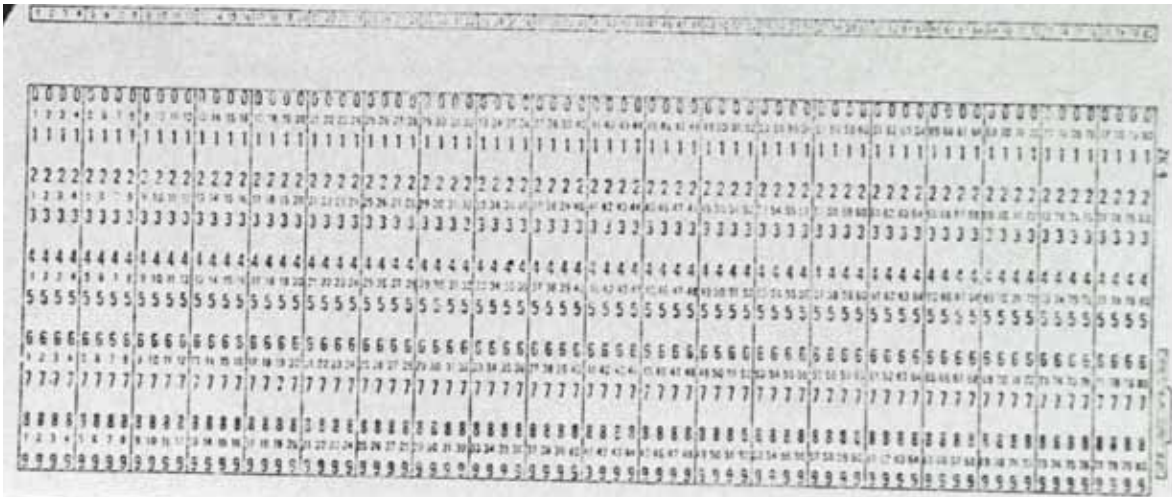 0000 0000 0000 0000 0000 0000 0000 0000 0000 0000 0000 0000 0000 0000 0000 0000 0000 0000 0000 0000
1 2 3 4 5 6 7 8 9 10 11 12 13 14 15 16 17 18 19 20 21 22 23 24 25 26 27 28 29 30 31 32 33 34 35 36 37 38 39 40 41 42 43 44 45 46 47 48 49 50 51 52 53 54 55 56 57 58 59 60 61 62 63 64 65 66 67 68 69 70 71 72 73 74 75 76 77 78 79 80
1111 1111 1111 1111 1111 1111 1111 1111 1111 1111 1111 1111 1111 1111 1111 1111 1111 1111 1111 1111
2222 2222 2222 2222 2222 2222 2222 2222 2222 2222 2222 2222 2222 2222 2222 2222 2222 2222 2222 2222
1 2 3 4 5 6 7 8 9 10 11 12 13 14 15 16 17 18 19 20 21 22 23 24 25 26 27 28 29 30 31 32 33 34 35 36 37 38 39 40 41 42 43 44 45 46 47 48 49 50 51 52 53 54 55 56 57 58 59 60 61 62 63 64 65 66 67 68 69 70 71 72 73 74 75 76 77 78 79 80
3333 3333 3333 3333 3333 3333 3333 3333 3333 3333 3333 3333 3333 3333 3333 3333 3333 3333 3333 3333
4444 4444 4444 4444 4444 4444 4444 4444 4444 4444 4444 4444 4444 4444 4444 4444 4444 4444 4444 4444
1 2 3 4 5 6 7 8 9 10 11 12 13 14 15 16 17 18 19 20 21 22 23 24 25 26 27 28 29 30 31 32 33 34 35 36 37 38 39 40 41 42 43 44 45 46 47 48 49 50 51 52 53 54 55 56 57 58 59 60 61 62 63 64 65 66 67 68 69 70 71 72 73 74 75 76 77 78 79 80
5555 5555 5555 5555 5555 5555 5555 5555 5555 5555 5555 5555 5555 5555 5555 5555 5555 5555 5555 5555
6666 6666 6666 6666 6666 6666 6666 6666 6666 6666 6666 6666 6666 6666 6666 6666 6666 6666 6666 6666
1 2 3 4 5 6 7 8 9 10 11 12 13 14 15 16 17 18 19 20 21 22 23 24 25 26 27 28 29 30 31 32 33 34 35 36 37 38 39 40 41 42 43 44 45 46 47 48 49 50 51 52 53 54 55 56 57 58 59 60 61 62 63 64 65 66 67 68 69 70 71 72 73 74 75 76 77 78 79 80
7777 7777 7777 7777 7777 7777 7777 7777 7777 7777 7777 7777 7777 7777 7777 7777 7777 7777 7777 7777
8888 8888 8888 8888 8888 8888 8888 8888 8888 8888 8888 8888 8888 8888 8888 8888 8888 8888 8888 8888
1 2 3 4 5 6 7 8 9 10 11 12 13 14 15 16 17 18 19 20 21 22 23 24 25 26 27 28 29 30 31 32 33 34 35 36 37 38 39 40 41 42 43 44 45 46 47 48 49 50 51 52 53 54 55 56 57 58 59 60 61 62 63 64 65 66 67 68 69 70 71 72 73 74 75 76 77 78 79 80
9999 9999 9999 9999 9999 9999 9999 9999 9999 9999 9999 9999 9999 9999 9999 9999 9999 9999 9999 9999